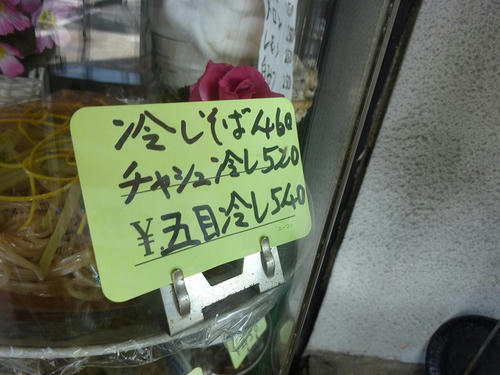 冷しそば460
チャシュー冷し520
¥五目冷し540